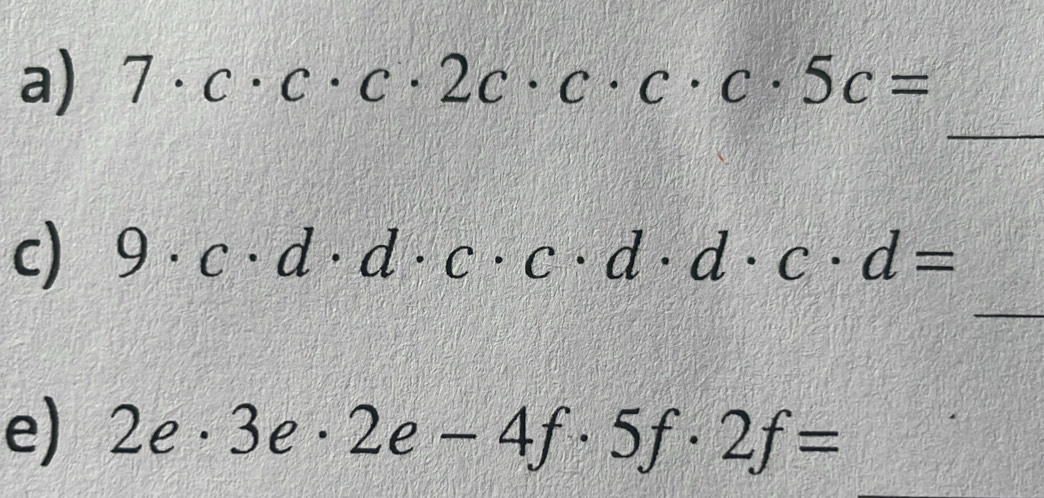 a) 7 · c · c · c · 2c · c · c · c · 5c =
c) 9 · c · d · d · c · c · d · d · c · d =
e) 2e · 3e · 2e − 4f · 5f · 2f =